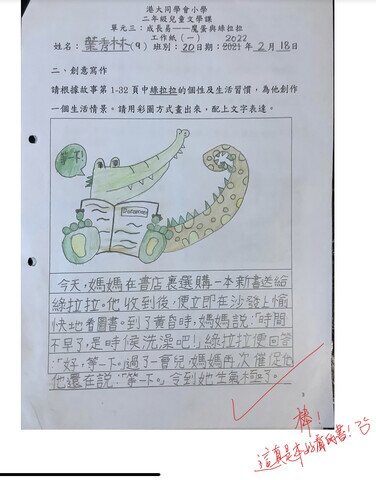 港大同學會小學
二年級兒童文學課
單元三：成長易——魔蛋與綠拉拉
工作紙(一) 2022
姓名：葉青林(9) 班別：2D 日期：2021年2月18日
二、創意寫作
請根據故事第1-32頁中綠拉拉的個性及生活習慣，為他創作
一個生活情景。請用彩圖方式畫出來，配上文字表達。
等一下!
Dinosaur
今天，媽媽在書店裏選購一本新書送給
綠拉拉。他收到後，便立即在沙發上愉
快地看圖書。到了黃昏時，媽媽說：「時間
不早了，是時候洗澡吧！」綠拉拉便回答
：「好，等一下。」過了一會兒，媽媽再次催促他
他還在說：「等一下。」令到她生氣極了。
3
棒！
這真是本好看的書！